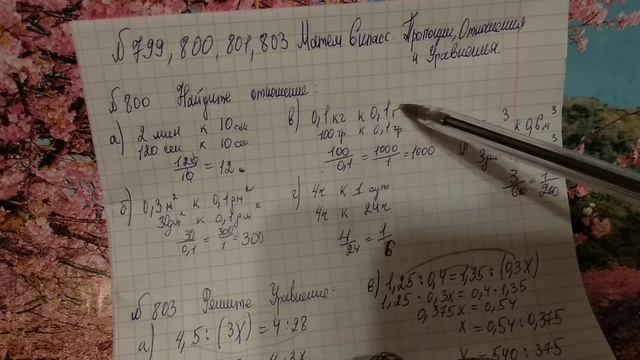 № 799, 800, 801, 803 Матем 6 класс. Пропорции, Отношения
и Уравнения.
№ 800 Найдите отношение:
а) 2 мин к 10 сек
120 сек к 10 сек
120/10 = 12
б) 0,3 м² к 0,1 дм²
30 дм² к 0,1 дм²
30/0,1 = 300/1 = 300
в) 0,1 кг к 0,1 г
100 гр к 0,1 гр
100/0,1 = 1000/1 = 1000
г) 4ч к 1 сут
4ч к 24ч
4/24 = 1/6
³ к 0,6 м³
3/60 = 1/20
№ 803 Решите Уравнение:
а) 4,5 : (3x) = 4 : 28
4 · 3x
в) 1,25 : 0,4 = 1,35 : (0,3x)
1,25 · 0,3x = 0,4 · 1,35
0,375x = 0,54
x = 0,54 : 0,375
x = 540 : 375